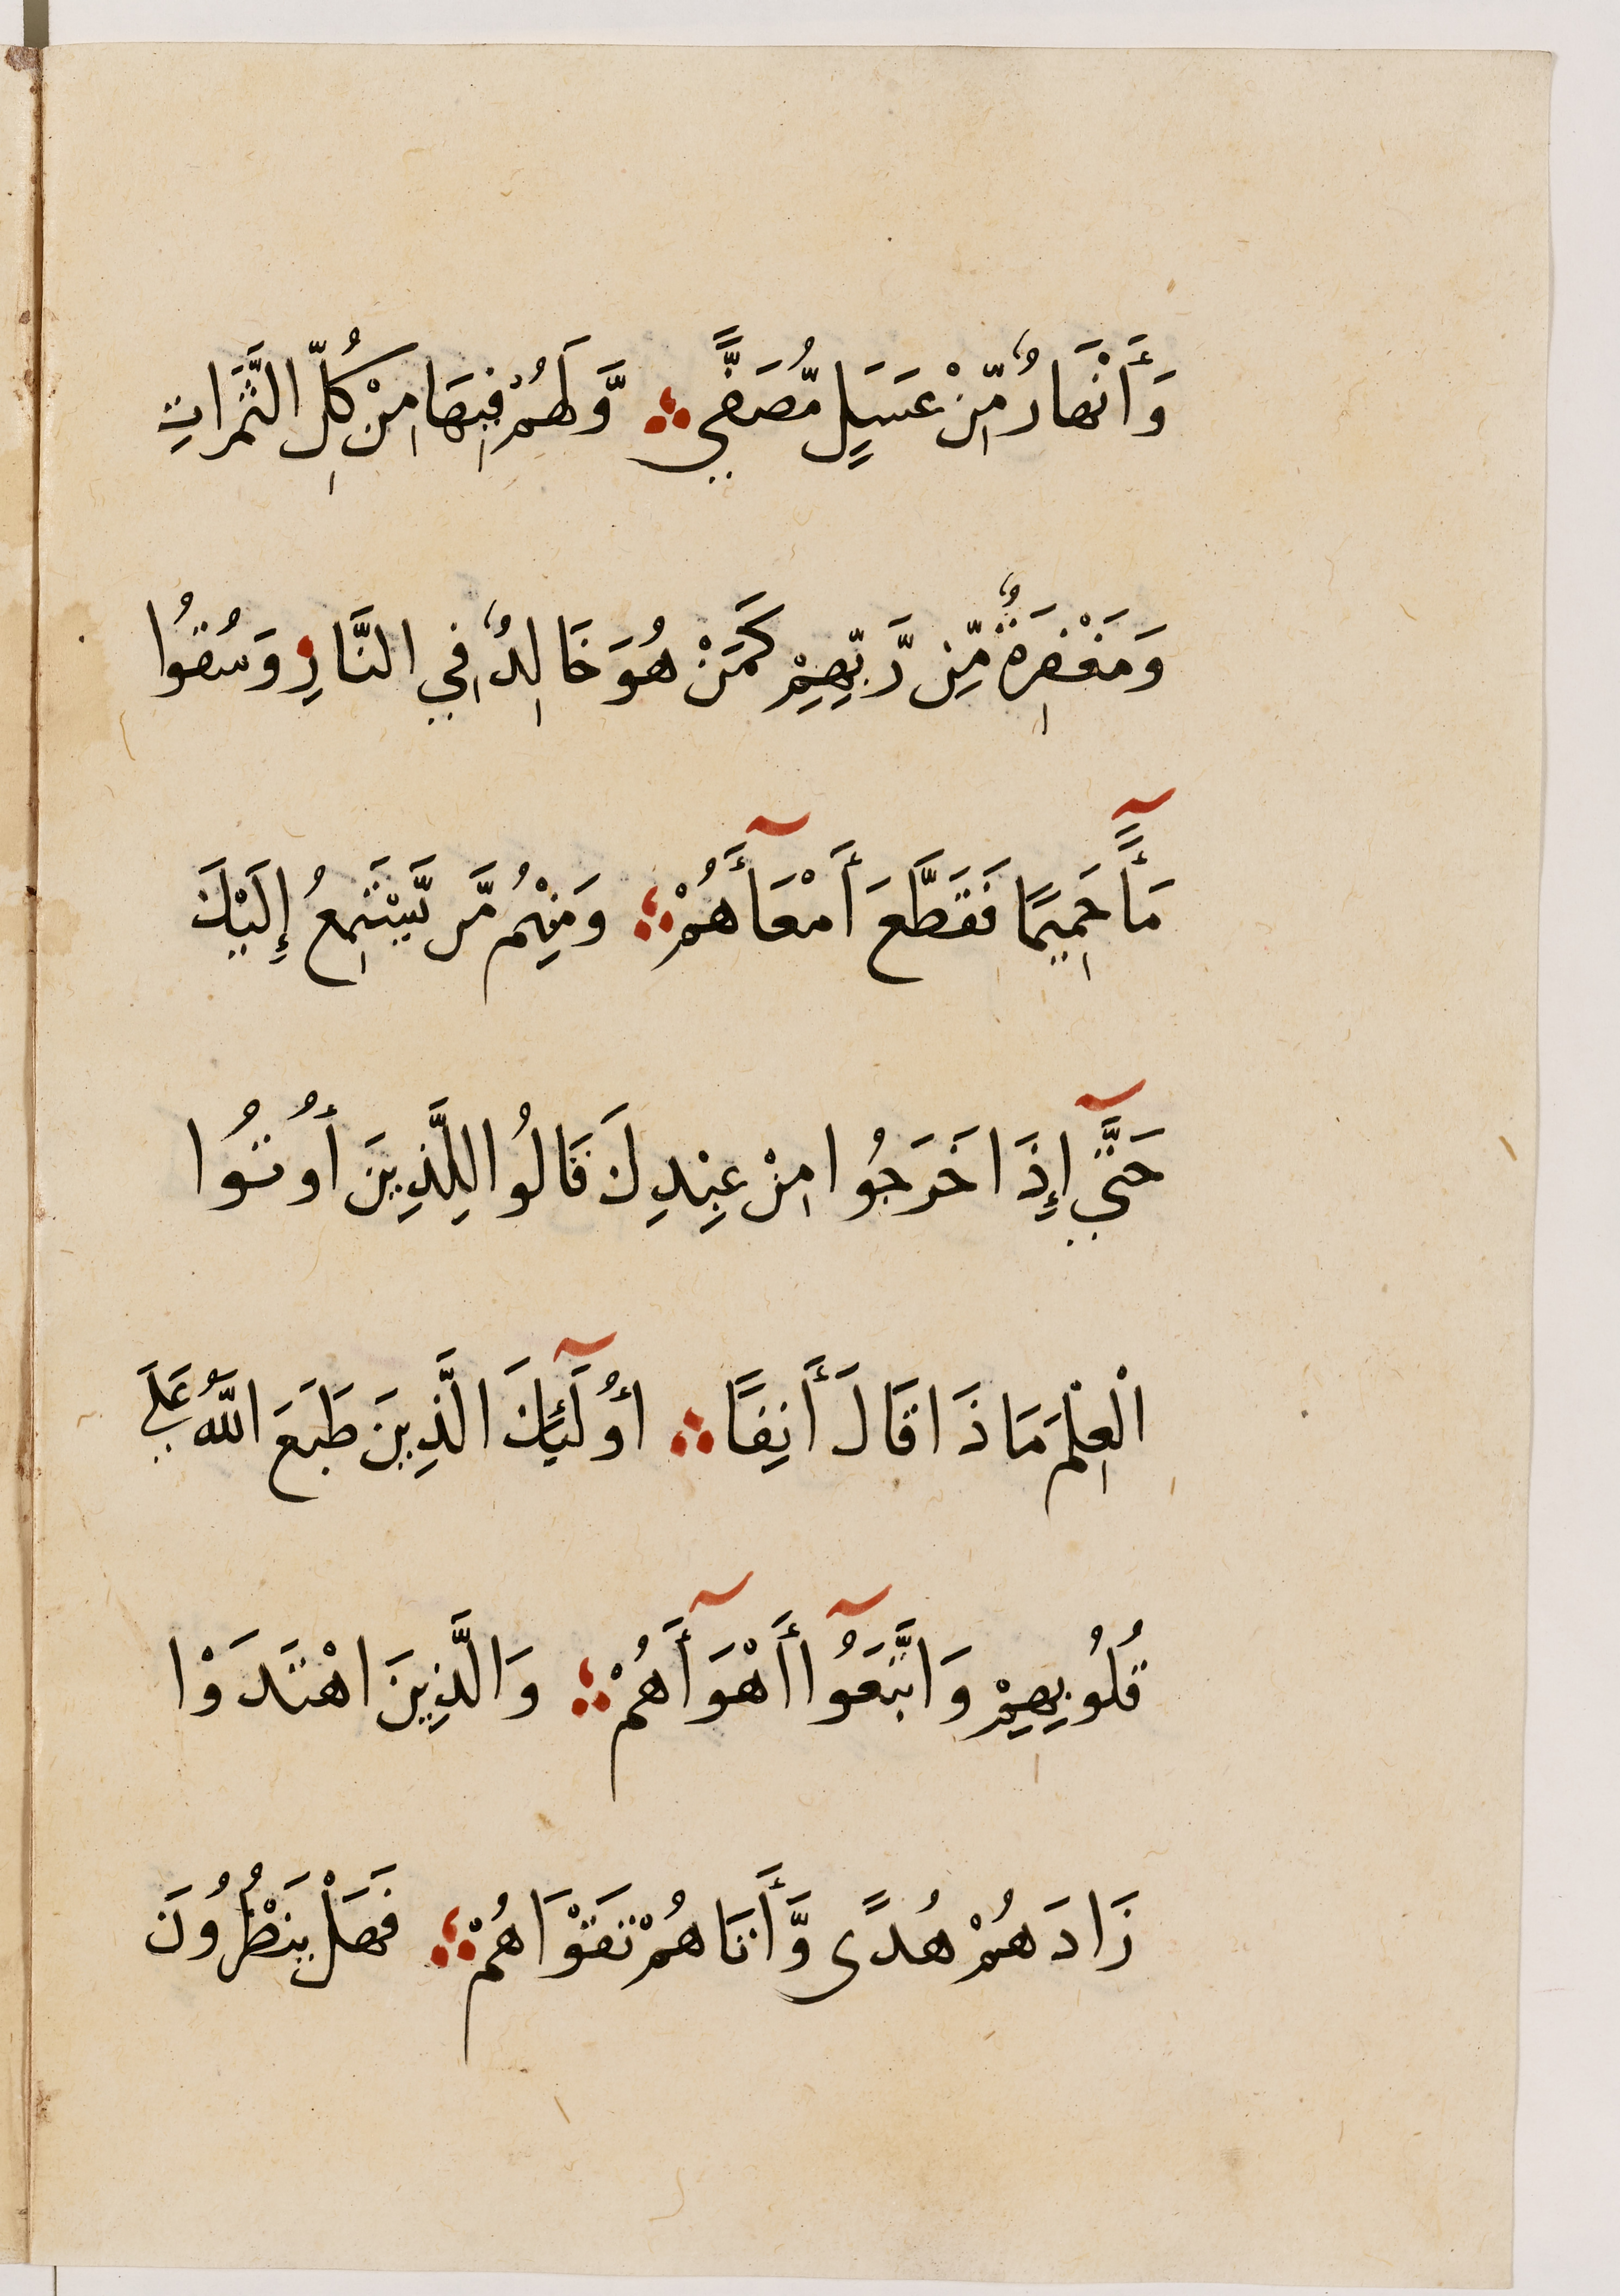 وَأَنْهَارٌ مِّنْ عَسَلٍ مُّصَفًّي ؞ وَّلَهُمْ فِيهَا مِنْ كُلِّ الثَّمَرَاتِ
وَمَغْفِرَةٌ مِّن رَّبِّهِمْ كَمَنْ هُوَ خَالِدٌ فِي النَّارِ وَسُقُوا
مَآأً حَمِيمًا فَقَطَّعَ أَمْعَآأَهُمْ ؞ وَمِنْهُم مَّن يَّسْتَمِعُ إِلَيْكَ
حَتَّيٓ إِذَا خَرَجُوا مِنْ عِنْدِكَ قَالُوا لِلَّذِينَ أُوتُوا
الْعِلْمَ مَاذَا قَالَ أَنِفًا ؞ أُولَٓئِكَ الَّذِينَ طَبَعَ اللَّهُ عَلَي
قُلُوبِهِمْ وَاتَّبَعُوآ أَهْوَآأَهُمْ ؞ وَالَّذِينَ اهْتَدَوْا
زَادَهُمْ هُدًى وَّأَتَاهُمْ تَقْوَاهُمْ ؞ فَهَلْ يَنْظُرُونَ